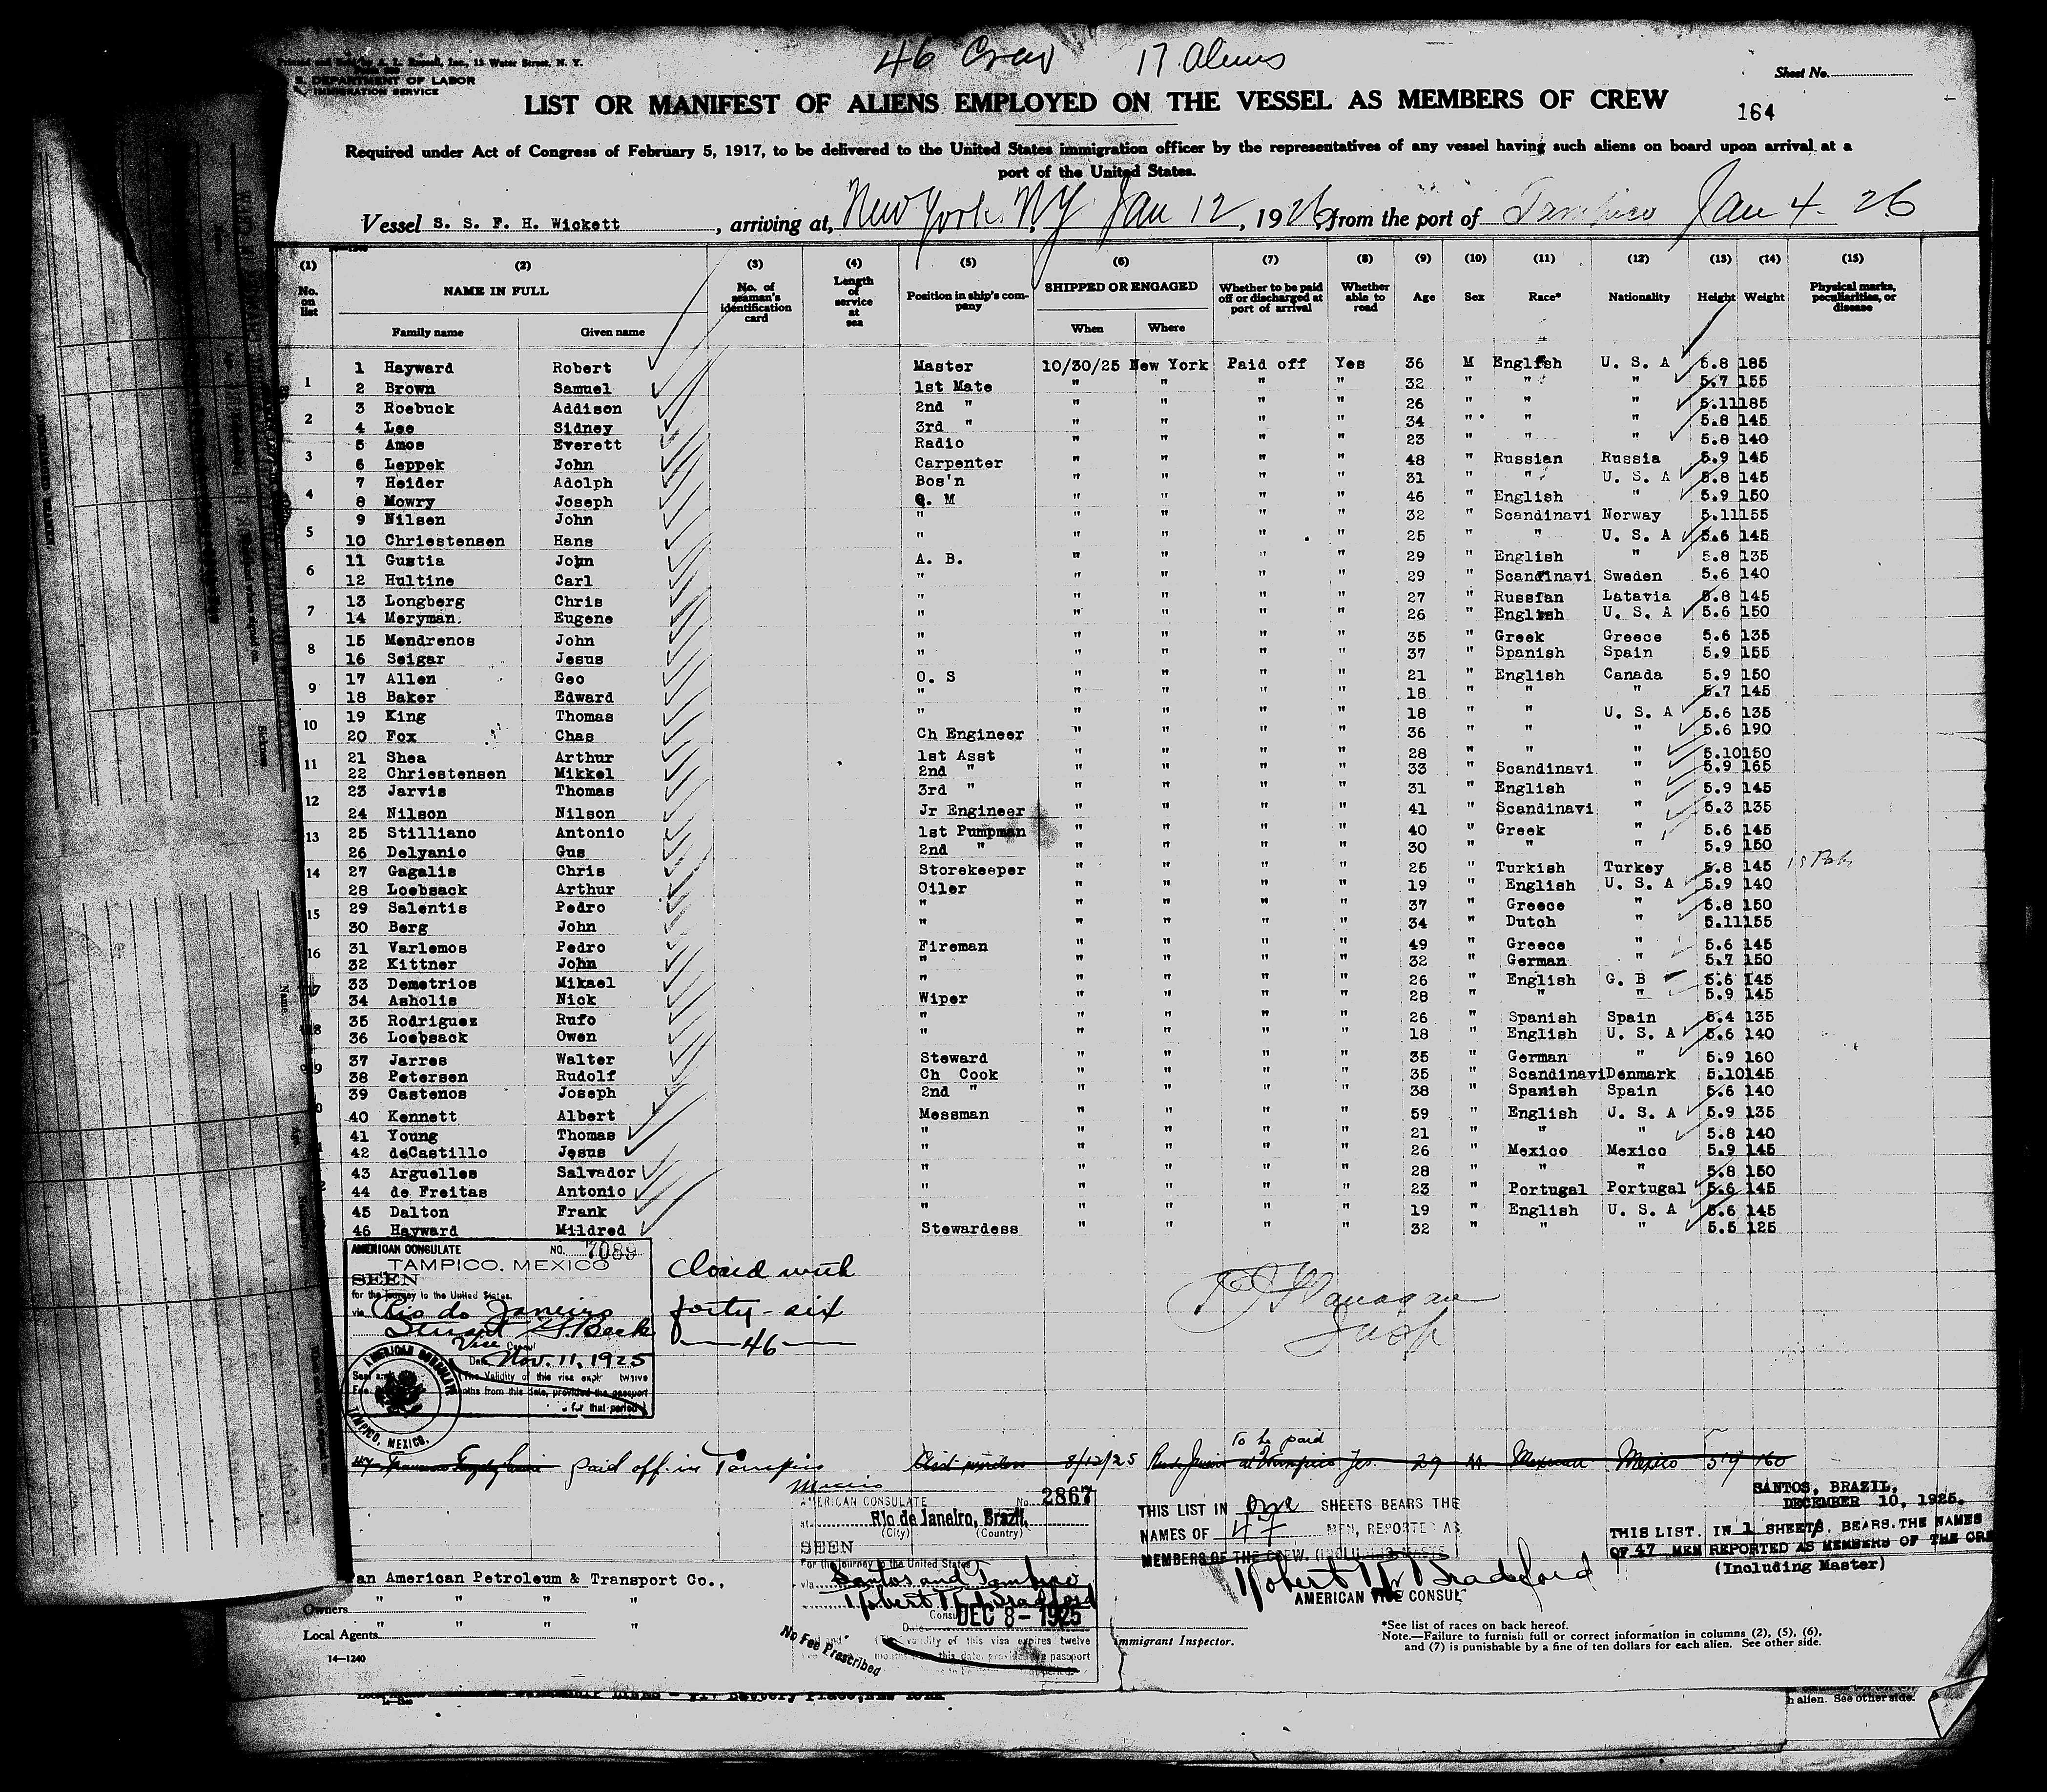 46 Crew 17 Aliens
Printed and Sold by A. L. Russell, Inc., 15 Water Street, N. Y.
DEPARTMENT OF LABOR
IMMIGRATION SERVICE
Sheet No.
LIST OR MANIFEST OF ALIENS EMPLOYED ON THE VESSEL AS MEMBERS OF CREW
164
Required under Act of Congress of February 5, 1917, to be delivered to the United States immigration officer by the representatives of any vessel having such aliens on board upon arrival at a
port of the United States.
Vessel S. S. F. H. Wickett, arriving at, New York. N.Y. Jan 12, 1926, from the port of Tampico Jan 4. 26
(1) (2) (3) (4) (5) (6) (7) (8) (9) (10) (11) (12) (13) (14) (15)
No. on list NAME IN FULL No. of seaman's identification card Length of service at sea Position in ship's company SHIPPED OR ENGAGED Whether to be paid off or discharged at port of arrival Whether able to read Age Sex Race* Nationality Height Weight Physical marks, peculiarities, or disease
Family name Given name When Where
1 Hayward Robert Master 10/30/25 New York Paid off Yes 36 M English U. S. A 5.8 185
2 Brown Samuel 1st Mate " " " " 32 " " " 5.7 155
3 Roebuck Addison 2nd " " " " " 26 " " " 5.11 185
4 Lee Sidney 3rd " " " " " 34 " " " 5.8 145
5 Amos Everett Radio " " " " 23 " " " 5.8 140
6 Leppek John Carpenter " " " " 48 " Russian Russia 5.9 145
7 Heider Adolph Bos'n " " " " 31 " " U. S. A 5.8 145
8 Mowry Joseph Q. M " " " " 46 " English " 5.9 150
9 Nilsen John " " " " " 32 " Scandinavi Norway 5.11 155
10 Christensen Hans " " " " " 25 " " U. S. A 5.6 145
11 Gustia John A. B. " " " " 29 " English " 5.8 135
12 Hultine Carl " " " " " 29 " Scandinavi Sweden 5.6 140
13 Longberg Chris " " " " " 27 " Russian Latavia 5.8 145
14 Meryman. Eugene " " " " " 26 " English U. S. A 5.6 150
15 Mendrenos John " " " " " 35 " Greek Greece 5.6 135
16 Seigar Jesus " " " " " 37 " Spanish Spain 5.9 155
17 Allen Geo O. S " " " " 21 " English Canada 5.9 150
18 Baker Edward " " " " " 18 " " " 5.7 145
19 King Thomas " " " " " 18 " " U. S. A 5.6 135
20 Fox Chas Ch Engineer " " " " 36 " " " 5.6 190
21 Shea Arthur 1st Asst " " " " 28 " " " 5.10 150
22 Christensen Mikkel 2nd " " " " " 33 " Scandinavi " 5.9 165
23 Jarvis Thomas 3rd " " " " " 31 " English " 5.9 145
24 Nilson Nilson Jr Engineer " " " " 41 " Scandinavi " 5.3 135
25 Stilliano Antonio 1st Pumpman " " " " 40 " Greek " 5.6 145
26 Delyanio Gus 2nd " " " " " 30 " " " 5.9 150
27 Gagalis Chris Storekeeper " " " " 25 " Turkish Turkey 5.8 145
28 Loebsack Arthur Oiler " " " " 19 " English U. S. A 5.9 140
29 Salentis Pedro " " " " " 37 " Greece " 5.8 150
30 Berg John " " " " " 34 " Dutch " 5.11 155
31 Varlemos Pedro Fireman " " " " 49 " Greece " 5.6 145
32 Kittner John " " " " " 32 " German " 5.7 150
33 Demetrios Mikael " " " " " 26 " English G. B 5.6 145
34 Asholis Nick Wiper " " " " 28 " " " 5.9 145
35 Rodriguez Rufo " " " " " 26 " Spanish Spain 5.4 135
36 Loebsack Owen " " " " " 18 " English U. S. A 5.6 140
37 Jarres Walter Steward " " " " 35 " German " 5.9 160
38 Petersen Rudolf Ch Cook " " " " 35 " Scandinavi Denmark 5.10 145
39 Castenos Joseph 2nd " " " " " 38 " Spanish Spain 5.6 140
40 Kennett Albert Messman " " " " 59 " English U. S. A 5.9 135
41 Young Thomas " " " " " 21 " " " 5.8 140
42 deCastillo Jesus " " " " " 26 " Mexico Mexico 5.9 145
43 Arguelles Salvador " " " " " 28 " " " 5.8 150
44 de Freitas Antonio " " " " " 23 " Portugal Portugal 5.6 145
45 Dalton Frank " " " " " 19 " English U. S. A 5.6 145
46 Hayward Mildred Stewardess " " " " 32 " " " 5.5 125
AMERICAN CONSULATE NO. 7089
TAMPICO, MEXICO
SEEN
for the journey to the United States.
via Rio de Janeiro
Stuart Beck
Vice Consul
Date Nov. 11, 1925
(The Validity of this visa twelve
months from this date, provided the passport
for that period)
AMERICAN CONSULATE TAMPICO, MEXICO.
Closed with
forty-six
—46—
47 paid off in Tampico Mexico 8/12/25 To be paid Yes 29 M Mexican Mexico 5'9 160
AMERICAN CONSULATE No. 2867
at Rio de Janeiro, Brazil,
(City) (Country)
SEEN
For the journey to the United States
via Santos and Tampico
Robert Bradford
Consul
DEC 8 - 1925
Date
(The validity of this visa expires twelve
months this date, provided passport
No Fee Prescribed
THIS LIST IN one SHEETS BEARS THE
NAMES OF 47 MEN, REPORTED AS
MEMBERS OF THE CREW.
Robert Bradford
AMERICAN VICE CONSUL
SANTOS, BRAZIL,
DECEMBER 10, 1925.
THIS LIST, IN 1 SHEETS, BEARS THE NAMES
OF 47 MEN REPORTED AS MEMBERS OF THE CRE
(Including Master)
an American Petroleum & Transport Co.,
Owners " " " "
Local Agents " " " "
14—1240
Immigrant Inspector.
*See list of races on back hereof.
Note.—Failure to furnish full or correct information in columns (2), (5), (6),
and (7) is punishable by a fine of ten dollars for each alien. See other side.
h alien. See other side.